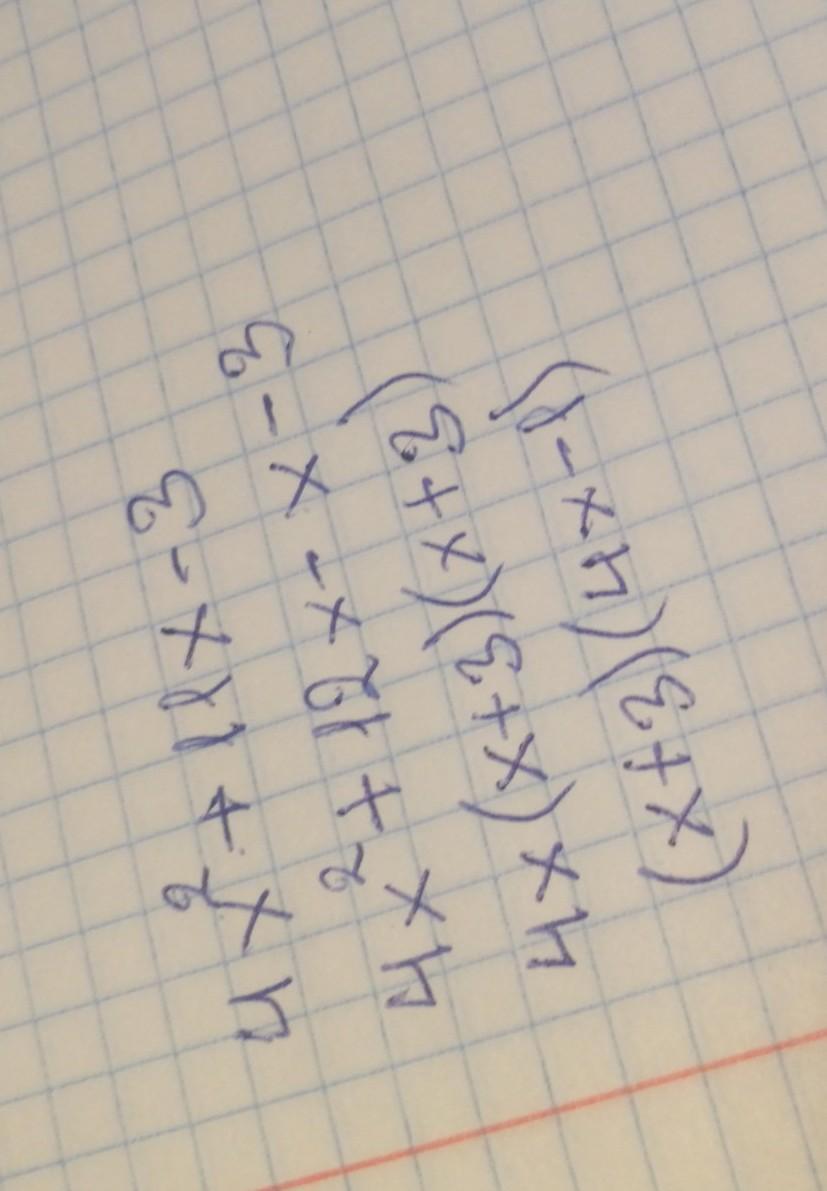 (x+3)(4x-1)
4x(x+3)(x+3)
4x²+12x-x-3
4x²+11x-3